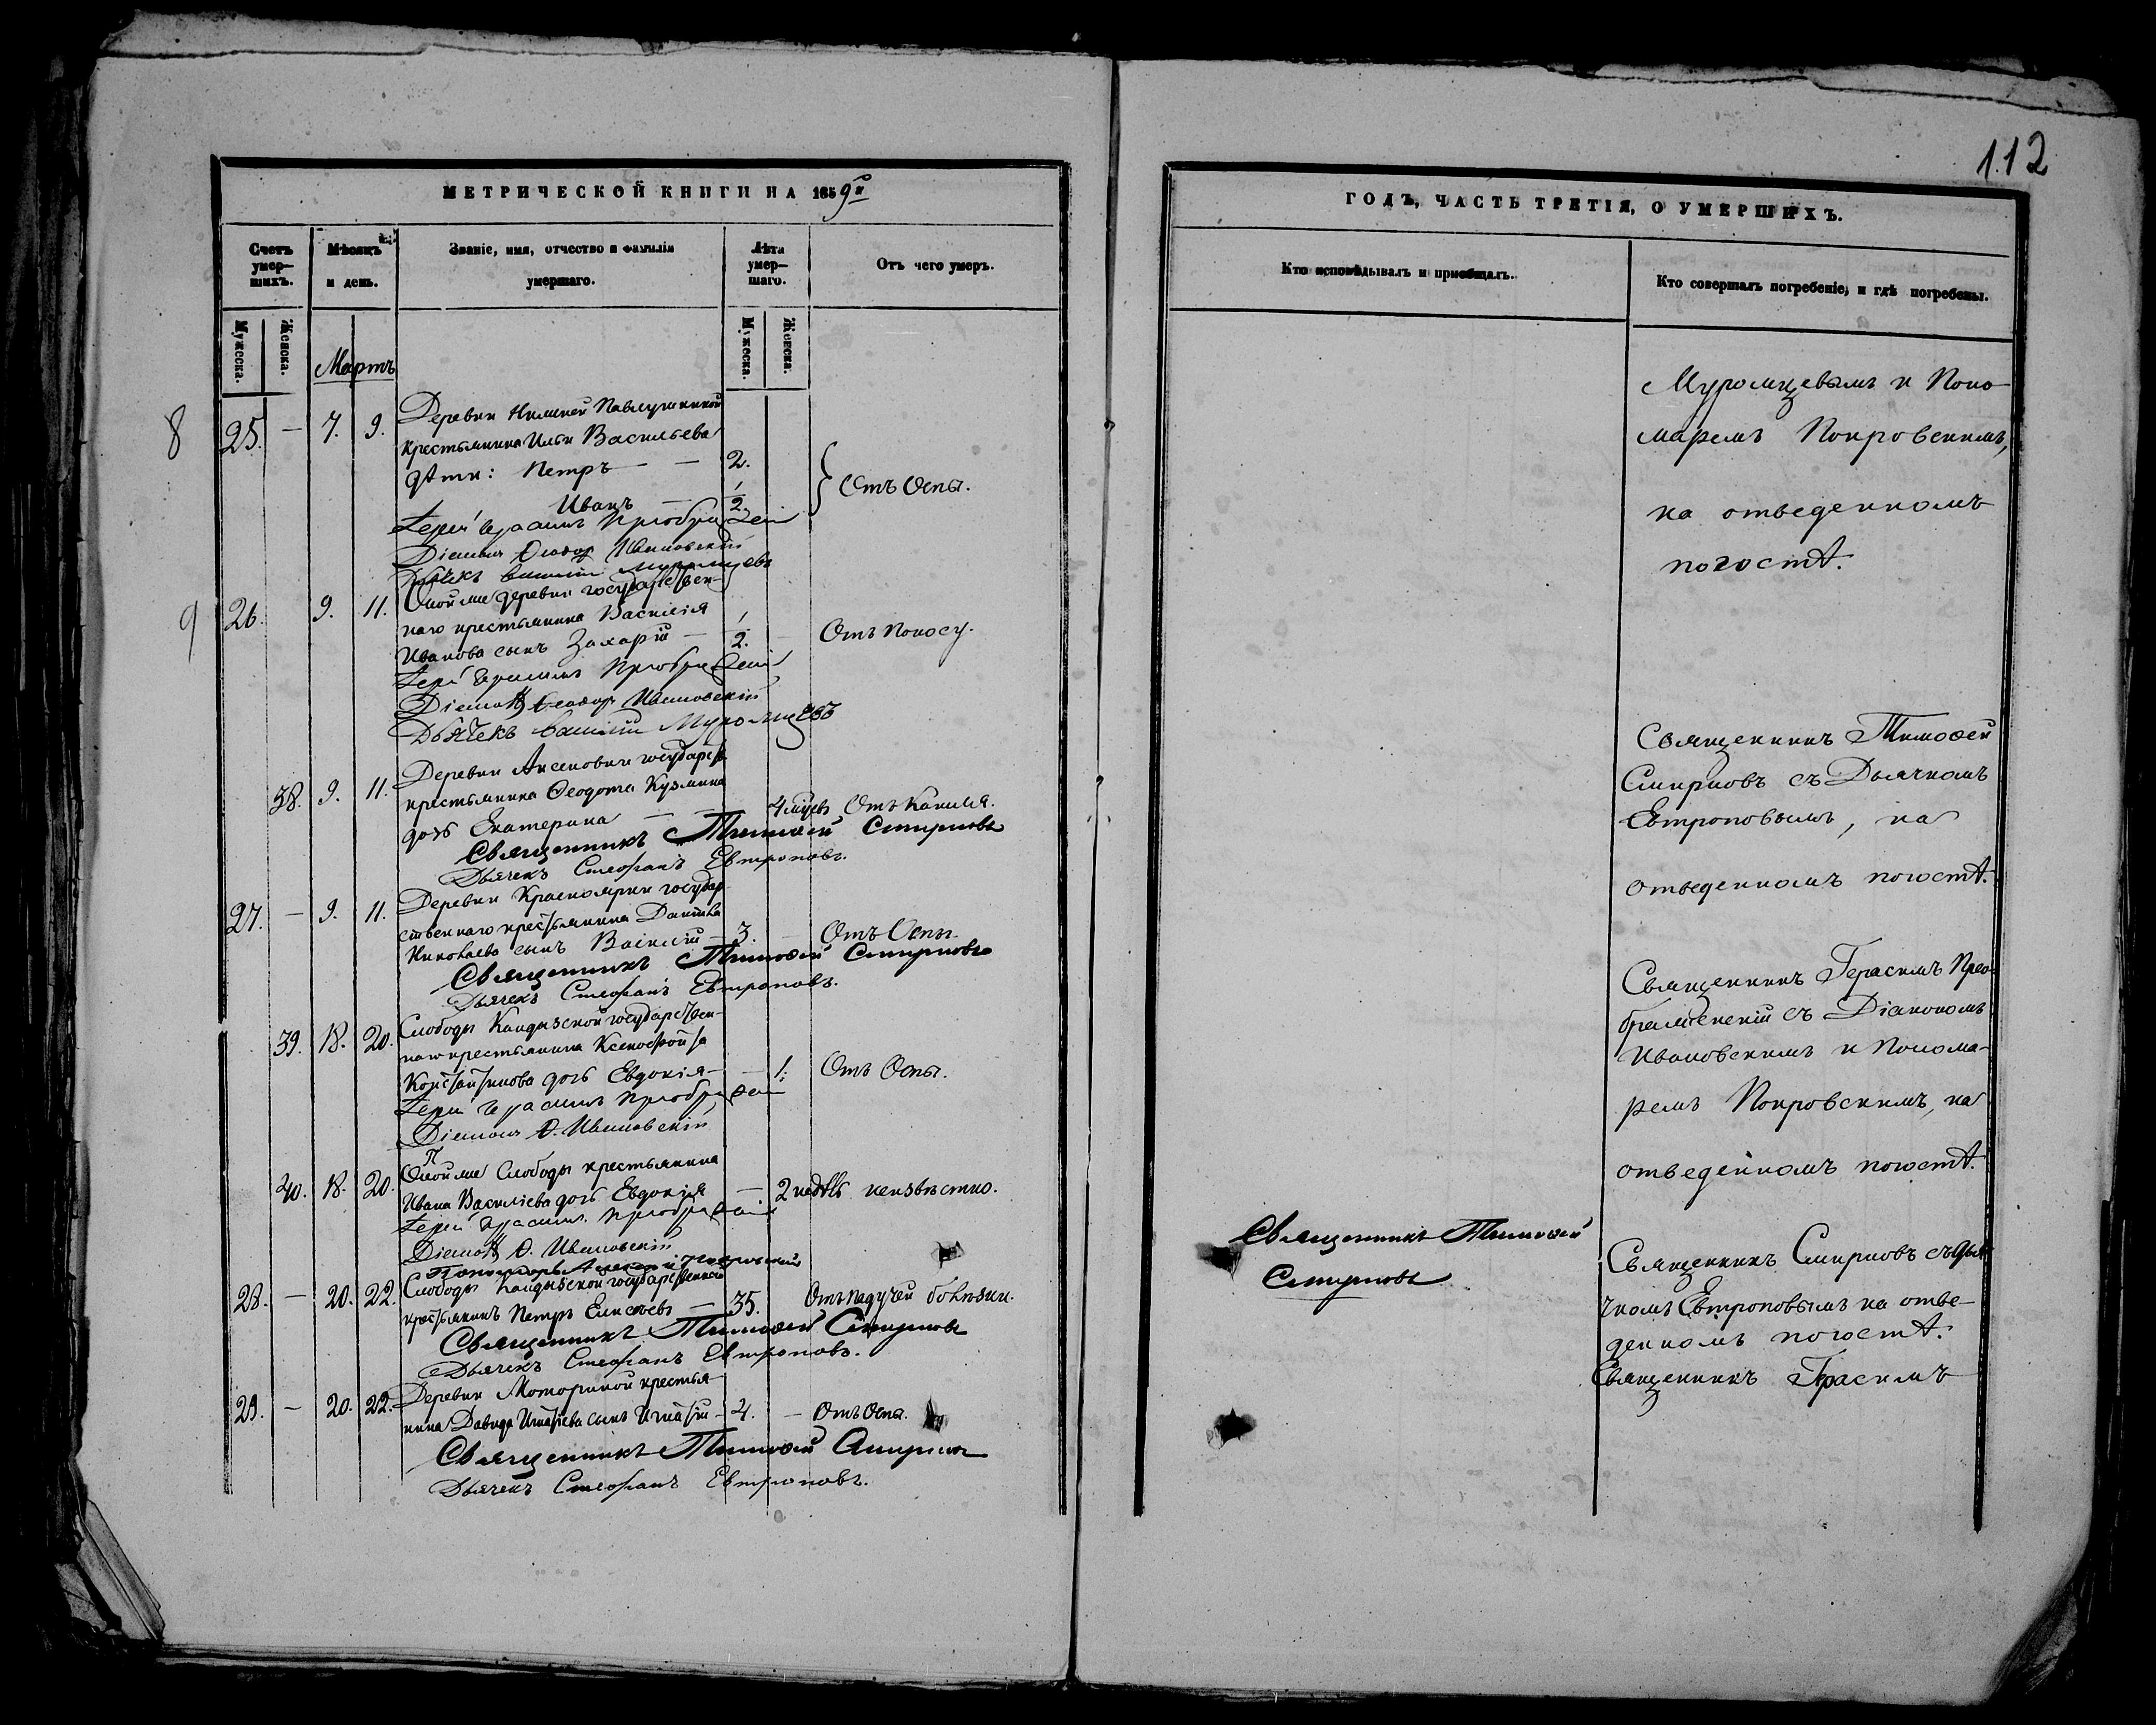 МЕТРИЧЕСКОЙ КНИГИ НА 1859й
Счетъ умер-шихъ.
Мѣсяцъ и день.
Званіе, имя, отчество и фамилія умершаго.
Лѣта умер-шаго.
Отъ чего умеръ.
Мужеска.
Женска.
Мужеска.
Женска.
Мартъ
8
25. — 7. 9. Деревни Нижней Павлушкиной
крестьянина Ильи Васильева
дѣти: Петръ — — 2.
Иванъ — 1/2. Отъ Оспы.
Іерей Герасимъ Преображенскій
Діаконъ Ѳеодоръ Ивановскій
Дьячекъ Василій Муромцевъ
9
26. 9. 11. Оной же деревни государствен-
наго крестьянина Василія
Иванова сынъ Захарій — 1/2. — Отъ Поносу.
Іерей Герасимъ Преображенскій
Діаконъ Ѳеодоръ Ивановскій
Дьячекъ Василій Муромцевъ
38. 9. 11. Деревни Аксеновки государств.
крестьянина Ѳеодота Кузмина
дочь Екатерина — 4 мцевъ Отъ Кашля.
Священникъ Тимоѳей Смирновъ
Дьячекъ Стефанъ Евтроповъ.
27. — 9. 11. Деревни Красноярки государ-
ственнаго крестьянина Данила
Николаева сынъ Василій — 3. — Отъ Оспы.
Священникъ Тимоѳей Смирновъ
Дьячекъ Стефанъ Евтроповъ.
39. 18. 20. Слободы Кандызской государствен-
наго крестьянина Ксенофонта
Константинова дочь Евдокія — — 1. Отъ Оспы.
Іерей Герасимъ Преображенскій
Діаконъ Ѳ. Ивановскій
П
40. 18. 20. Оной же Слободы крестьянина
Ивана Василіева дочь Евдокія — 2 недѣль неизвѣстно.
Іерей Герасимъ Преображенскій
Діаконъ Ѳ. Ивановскій
Пономарь Покровскій
28. — 20. 22. Слободы Кандызской государственной
крестьянинъ Петръ Елисѣевъ — 35. Отъ падучей болѣзни.
Священникъ Тимоѳей Смирновъ
Дьячекъ Стефанъ Евтроповъ.
29. — 20. 22. Деревни Моториной крестья-
нина Давида Игнатіева сынъ Игнатій — 4. — Отъ Оспы.
Священникъ Тимоѳей Смирновъ
Дьячекъ Стефанъ Евтроповъ.
112
ГОДЪ, ЧАСТЬ ТРЕТІЯ, О УМЕРШИХЪ.
Кто исповѣдывалъ и пріобщалъ.
Кто совершалъ погребеніе, и гдѣ погребены.
Муромцевымъ и Поно-
маремъ Покровскимъ,
на отведенномъ
погостѣ.
Священникъ Тимоѳей
Смирновъ съ Дьячкомъ
Евтроповымъ, на
отведенномъ погостѣ.
Священникъ Герасимъ Прео-
браженскій съ Діакономъ
Ивановскимъ и Понома-
ремъ Покровскимъ, на
отведенномъ погостѣ.
Священникъ Тимоѳей
Смирновъ
Священникъ Смирновъ съ Дья-
чкомъ Евтроповымъ на отве-
денномъ погостѣ.
Священникъ Герасимъ